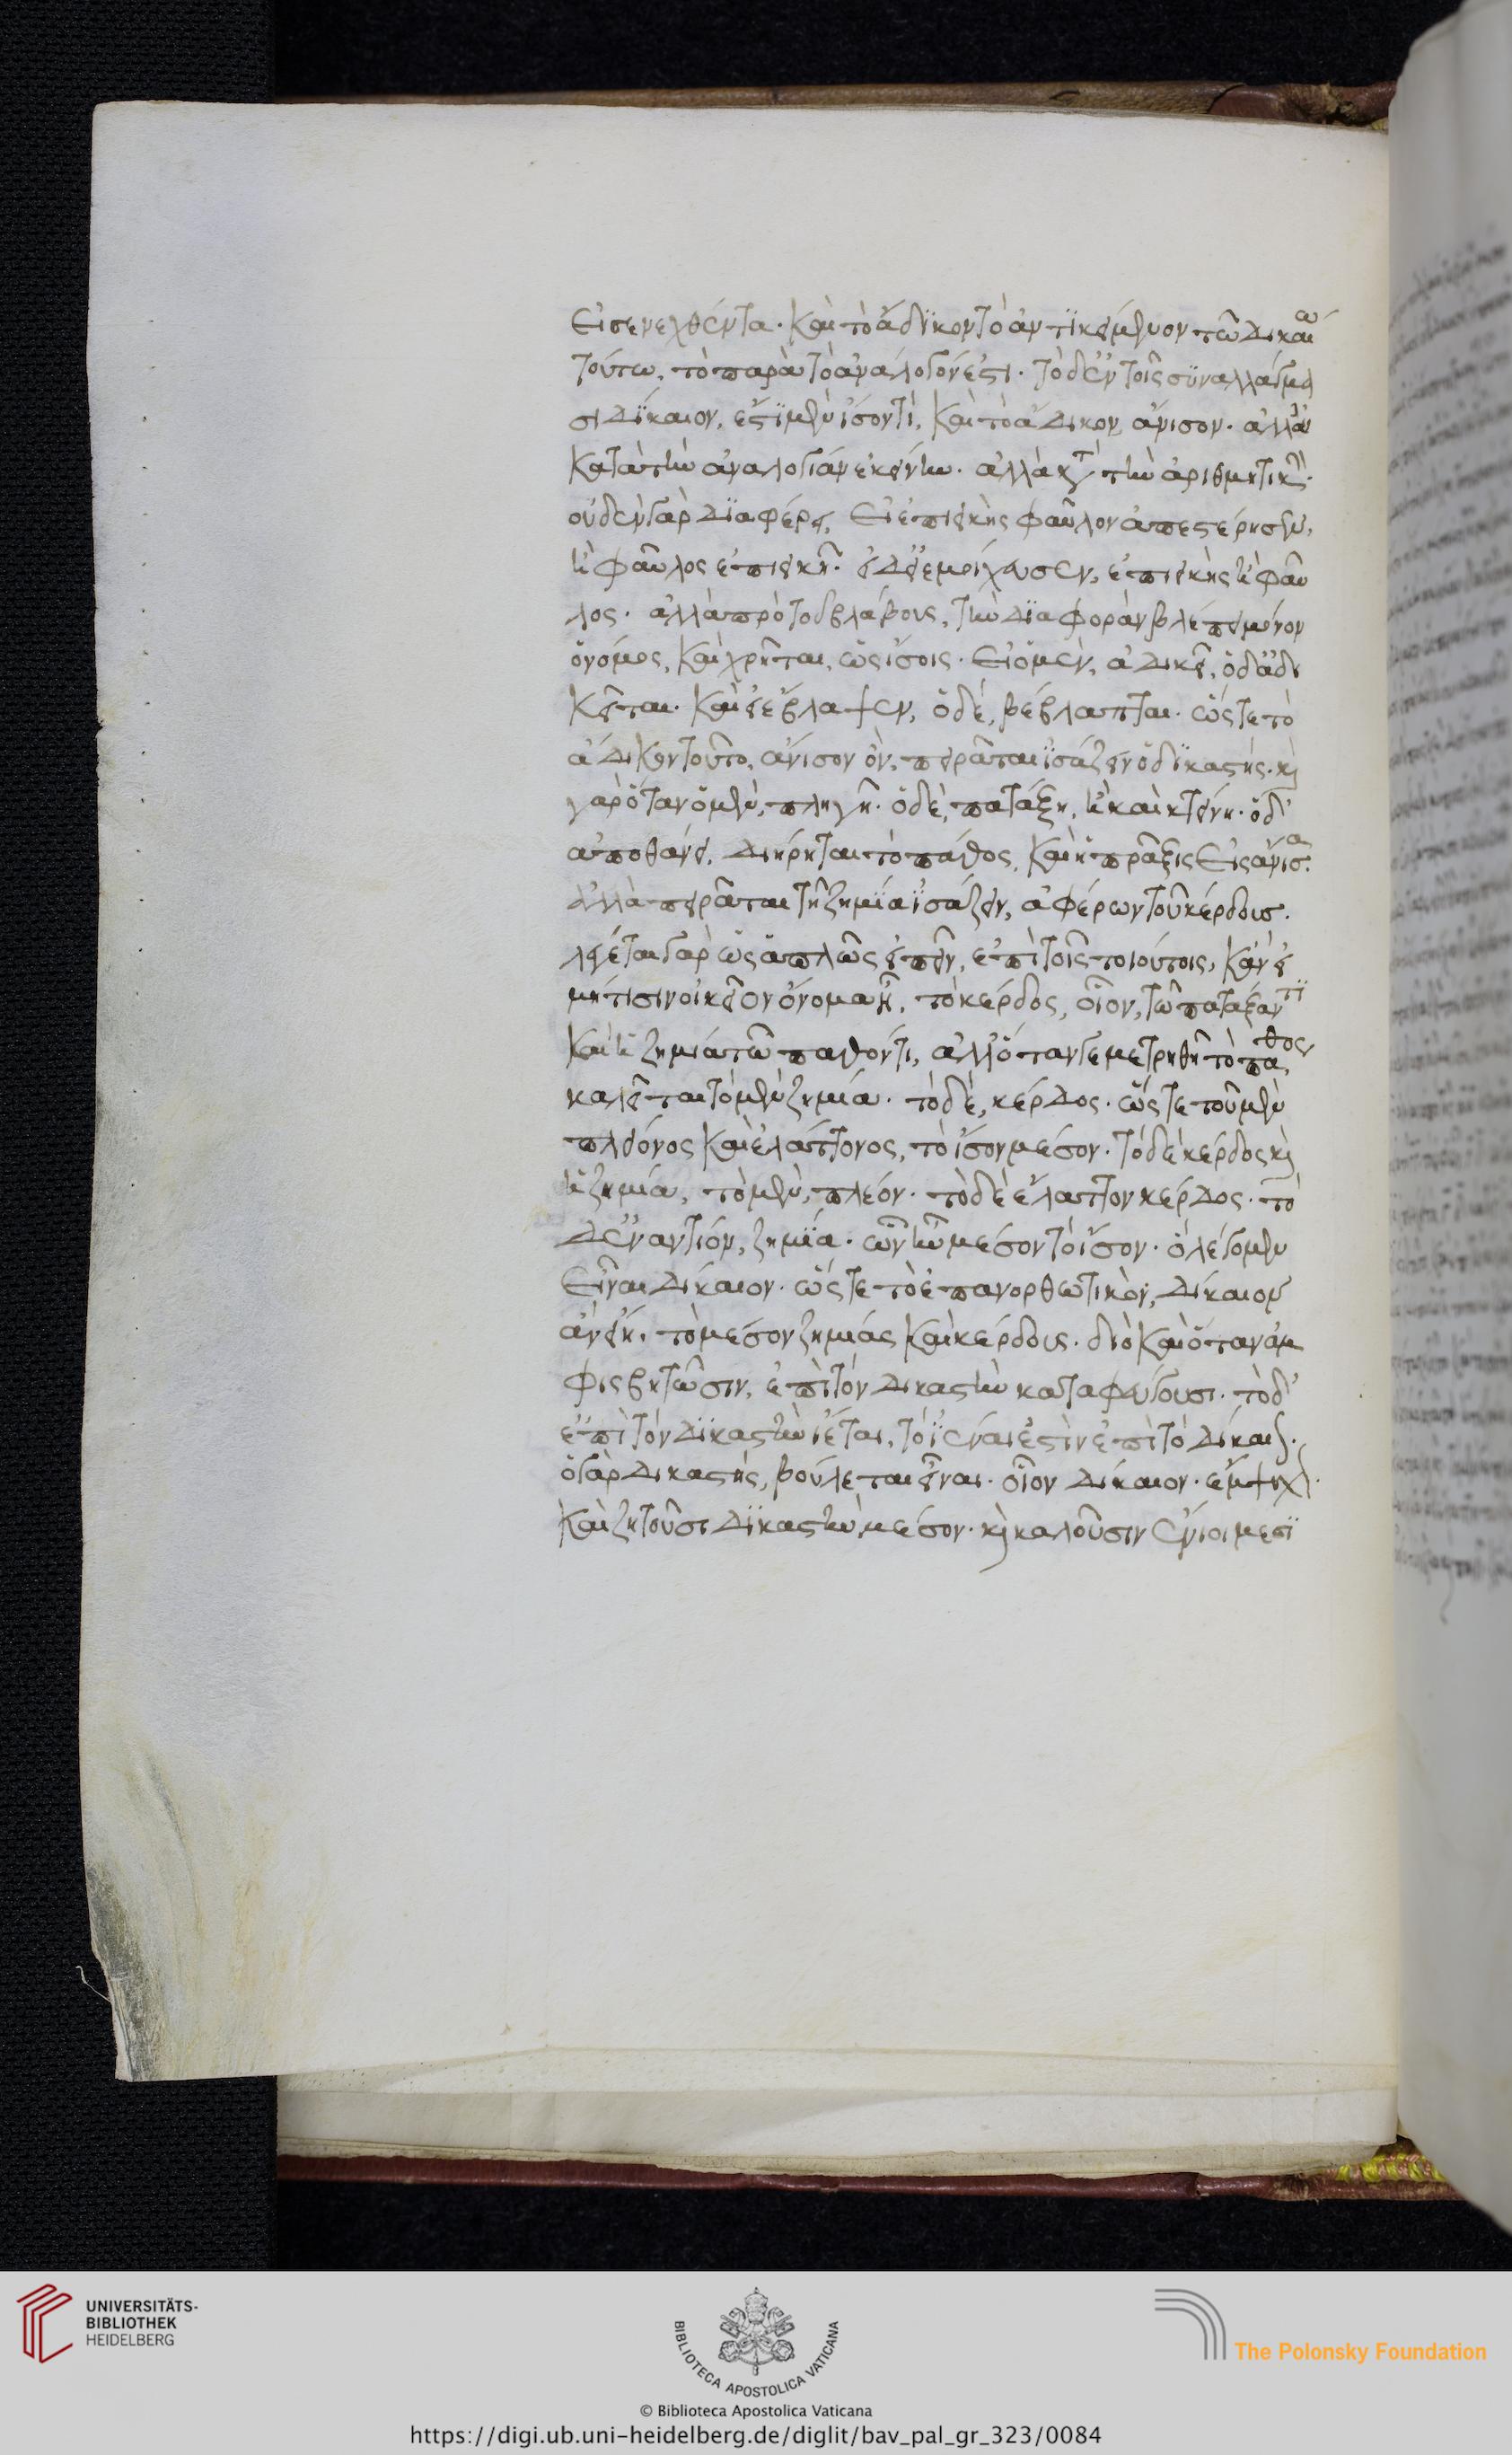 εἰσενεχθέντα. καὶ τὸ ἄδϊκον τὸ ἀντϊκείμενον τῶ δικαίω
τούτω, τὸ παρὰ τὸ ἀνάλογόν ἐστι. τὸ δ' ἐν τοῖς συναλλάγμα
σι δΐκαιον, ἐστὶ μὲν ἴσον τὶ, καὶ τὸ ἄδικον ἄνισον. ἀλλ' οὐ
κατὰ τὴν ἀναλογίαν ἐκείνην. ἀλλὰ κατὰ τὴν ἀριθμητικὴν.
οὐδὲν γὰρ δϊαφέρει, εἰ ἐπιεικὴς φαῦλον ἀπεστέρησεν,
ἢ φαῦλος ἐπιεικῆ. εἰδ' ἐμοίχευσεν, ἐπιεικὴς ἢ φαῦ
λος. ἀλλὰ πρὸς τοῦ βλάβους, τὴν δϊαφορὰν βλέπει μόνον
ὁ νόμος, καὶ χρῆται, ὡς ἴσοις. εἰ ὁ μὲν, ἀδικεῖ, ὁ δ' ἀδι
κεῖται. καὶ εἰ ἔβλαψεν, ὁ δὲ, βέβλαπται. ὥστε τὸ
ἄδικον τοῦτο, ἄνισον ὂν, πειρᾶται ἰσάζειν ὁ δϊκαστής. καὶ
γὰρ ὅταν ὁ μὲν, πληγῆ. ὁ δὲ, πατάξη, ἢ καὶ κτείνη. ὁ δ'
ἀποθάνει, διήρηται τὸ πάθος, καὶ ἡ πρᾶξις εἰς ἄνισα.
ἀλλὰ πειρᾶται τῆ ζημΐα ἰσάζειν, ἀφέρων τοῦ κέρδους.
λέγεται γὰρ ὡς ἁπλῶς εἰπεῖν, ἐπὶ τοῖς τοιούτοις, κἂν εἰ
μή τισιν οἰκεῖον ὄνομα ἦ, τὸ κέρδος, οἷον, τῶ πατάξαντϊ
καὶ ἡ ζημιὰ τῶ παθόντι, ἀλλ' ὅταν γε μετρηθῆ τὸ πάθος,
καλεῖται τὸ μὲν ζημιά. τὸ δὲ, κέρδος. ὥστε τοῦ μὲν
πλείονος καὶ ἐλάττονος, τὸ ἴσον μέσον. τὸ δὲ κέρδος καὶ
ἡ ζημία, τὸ μὲν, πλέον. τὸ δὲ ἔλαττον κέρδος. τὸ
δ' ἐναντίον, ζημΐα. ὧν ἦν μέσον τὸ ἴσον. ὃ λέγομεν
εἶναι δίκαιον. ὥστε τὸ ἐπανορθωτικὸν, δίκαιον
ἂν εἴη. τὸ μέσον ζημιάς καὶ κέρδους. διὸ καὶ ὅταν ἀμ
φισβητῶσιν, ἐπὶ τὸν δικαστὴν καταφεύγουσι. τὸ δ'
ἐπὶ τὸν δϊκαστὴν ἰέναι, τὸ ἰέναι ἐστὶν ἐπὶ τὸ δίκαιον.
ὁ γὰρ δικαστὴς, βούλεται εἶναι. οἷον δίκαιον. ἔμψυχον.
καὶ ζητοῦσι δϊκαστὴν, μέσον. καὶ καλοῦσιν ἔνιοι μεσϊ
UNIVERSITÄTS-
BIBLIOTHEK
HEIDELBERG
BIBLIOTECA APOSTOLICA VATICANA
The Polonsky Foundation
© Biblioteca Apostolica Vaticana
https://digi.ub.uni-heidelberg.de/diglit/bav_pal_gr_323/0084